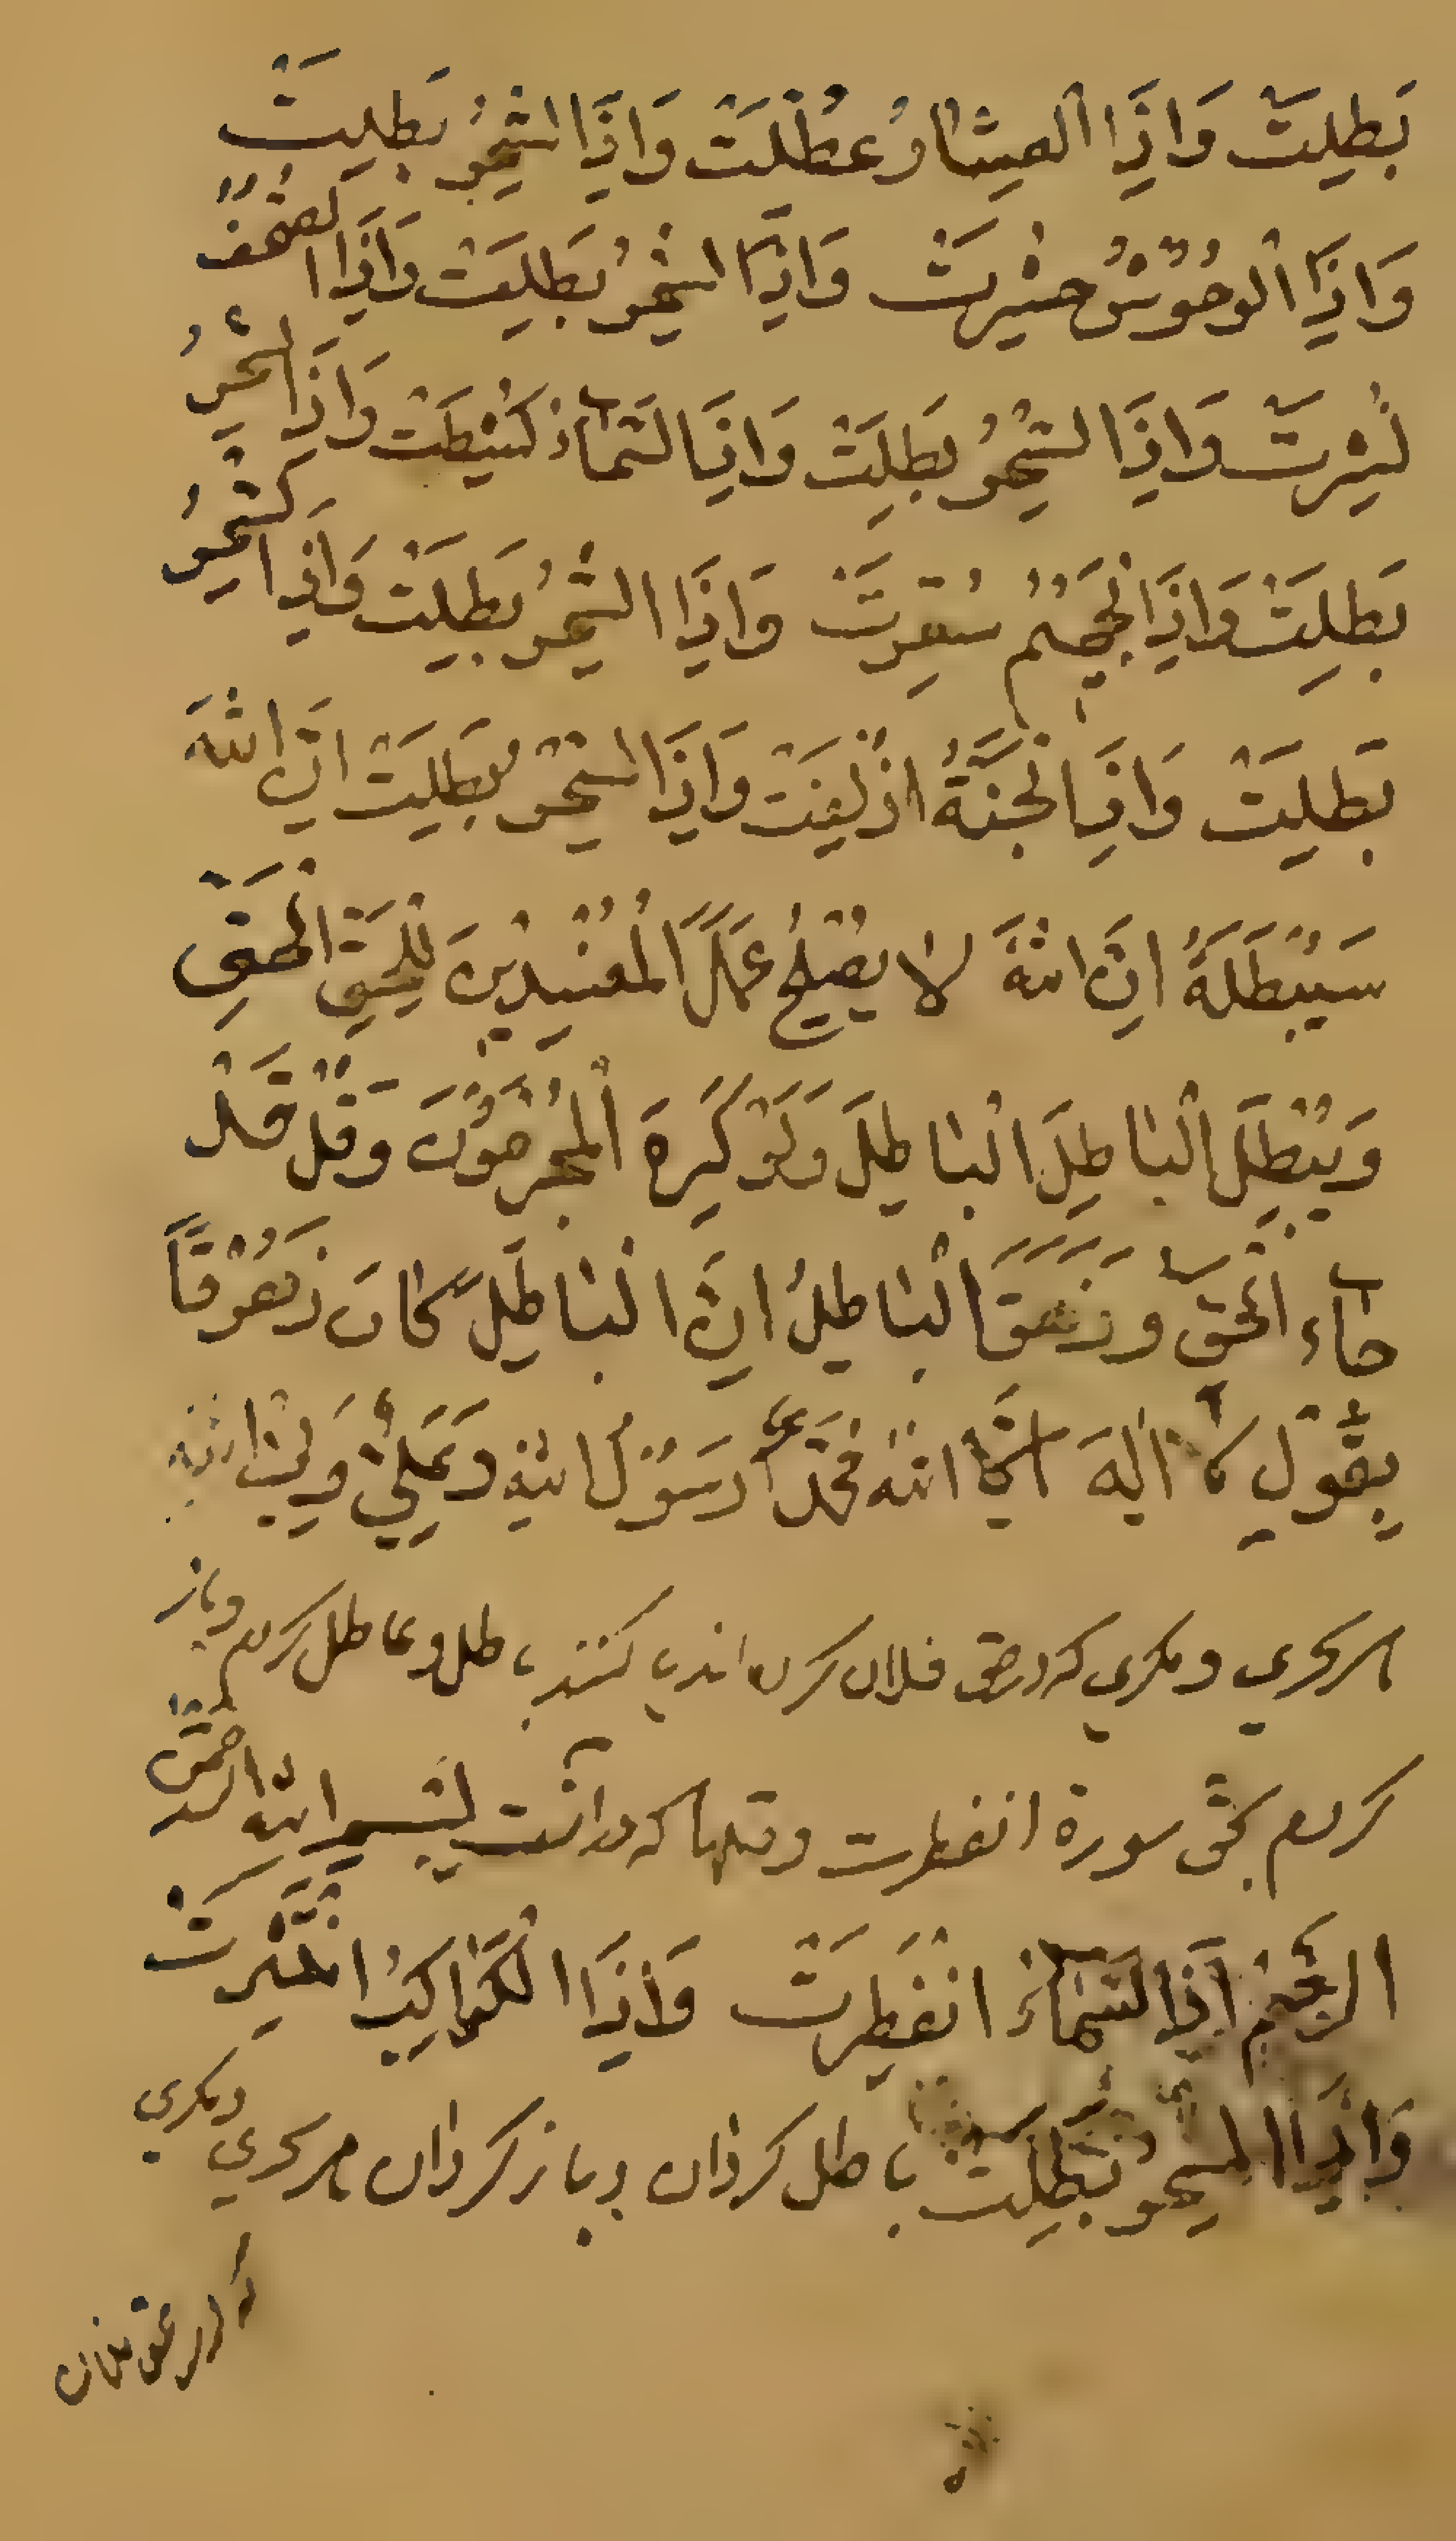 بَطَلِتَ وَاِذَا الْعِشَارُ عُطِّلَتْ وَاِذَا السِّحْرُ بَطَلِتَتْ
وَاِذَا الْوُحُوْشُ حُشِرَتْ وَاِذَا السِّحْرُ بَطَلِيَتْ وَاِذَا الصُّحُفُ
نُشِرَتْ وَاِذَا السِّحْرُ بَطَلِتْ وَاِذَا السَّمَآءُ كُشِطَتْ وَاِذَا السِّحْرُ
بَطَلِتْ وَاِذَا الْجَحِيْمُ سُعِّرَتْ وَاِذَا السِّحْرُ بَطَلِيَتْ وَاِذَا السِّحْرُ
بَطَلِيَتْ وَاِذَا الْجَنَّةُ اُزْلِفَتْ وَاِذَا السِّحْرُ بَطَلِيَتْ اِنَّ اللّٰهَ
سَيُبْطِلَهُ اِنَّ اللّٰهَ لَا يُصْلِحُ عَمَلَ الْمُفْسِدِيْنَ لِيُحِقَّ الْحَقَّ
وَيُبْطِلَ الْبَاطِلَ الْبَاطِلَ وَلَوْ كَرِهَ الْمُجْرِمُوْنَ وَقُلْ قَدْ
جَآءَ الْحَقُّ وَزَهَقَ الْبَاطِلُ اِنَّ الْبَاطِلَ كَانَ زَهُوْقًا
بِقَوْلِ لَا اِلٰهَ اِلَّا اللّٰهُ مُحَمَّدٌ رَسُوْلُ اللّٰهِ وَعَلِيٌّ وَلِيُّ اللّٰهِ
هر سحری و مکری که در حق فلان کرده اند یا کنند باطل و عاطل کردم و باز
کردم بحق سورة انفطرت و قلها که در آنست بسم الله الرحمن
الرَّحِيْمِ اِذَا السَّمَآءُ انْفَطَرَتْ وَاِذَا الْكَوَاكِبُ انْتَثَرَتْ
وَاِذَا السِّحْرُ بَطَلِتْ باطل کردان و باز کردان هر سحری و مکری
که در حق فلان